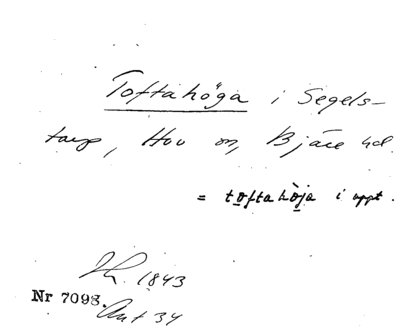 Toftahöga i Segels-
tarp, Hov sn, Bjäre hd.
= toftahöja i uppt.
1843
Nr 7098.
Ant 34